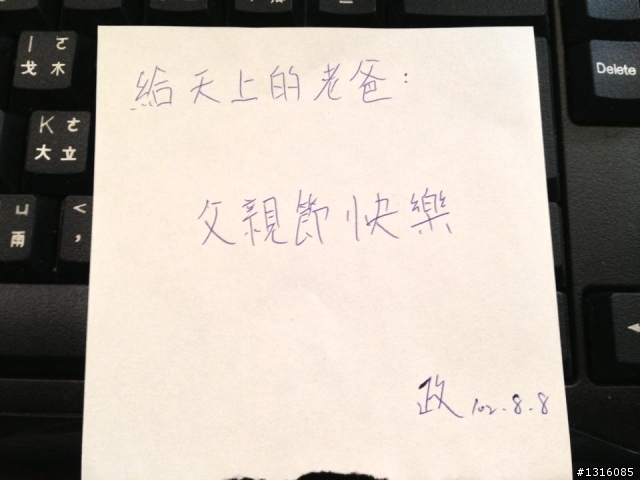 給天上的老爸:
父親節快樂
政 102.8.8
Delete
戈 木
K ㄜ
大 立
ㄩ
雨
<
,
#1316085